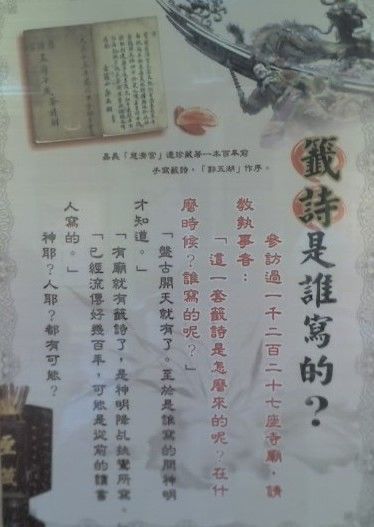 籤詩是誰寫的？
參訪過一千二百二十七座寺廟，請
教執事者：
「這一套籤詩是怎麼來的呢？在什
麼時候？誰寫的呢？」
「盤古開天就有了。至於是誰寫的問神明
才知道。」
「有廟就有籤詩了，是神明降乩扶鸞所寫。」
「已經流傳好幾百年，可能是從前的讀書
人寫的。」
神耶？人耶？都有可能？
嘉義「慈濟宮」還珍藏著一本百年前
手寫籤詩，「郭五湖」作序。